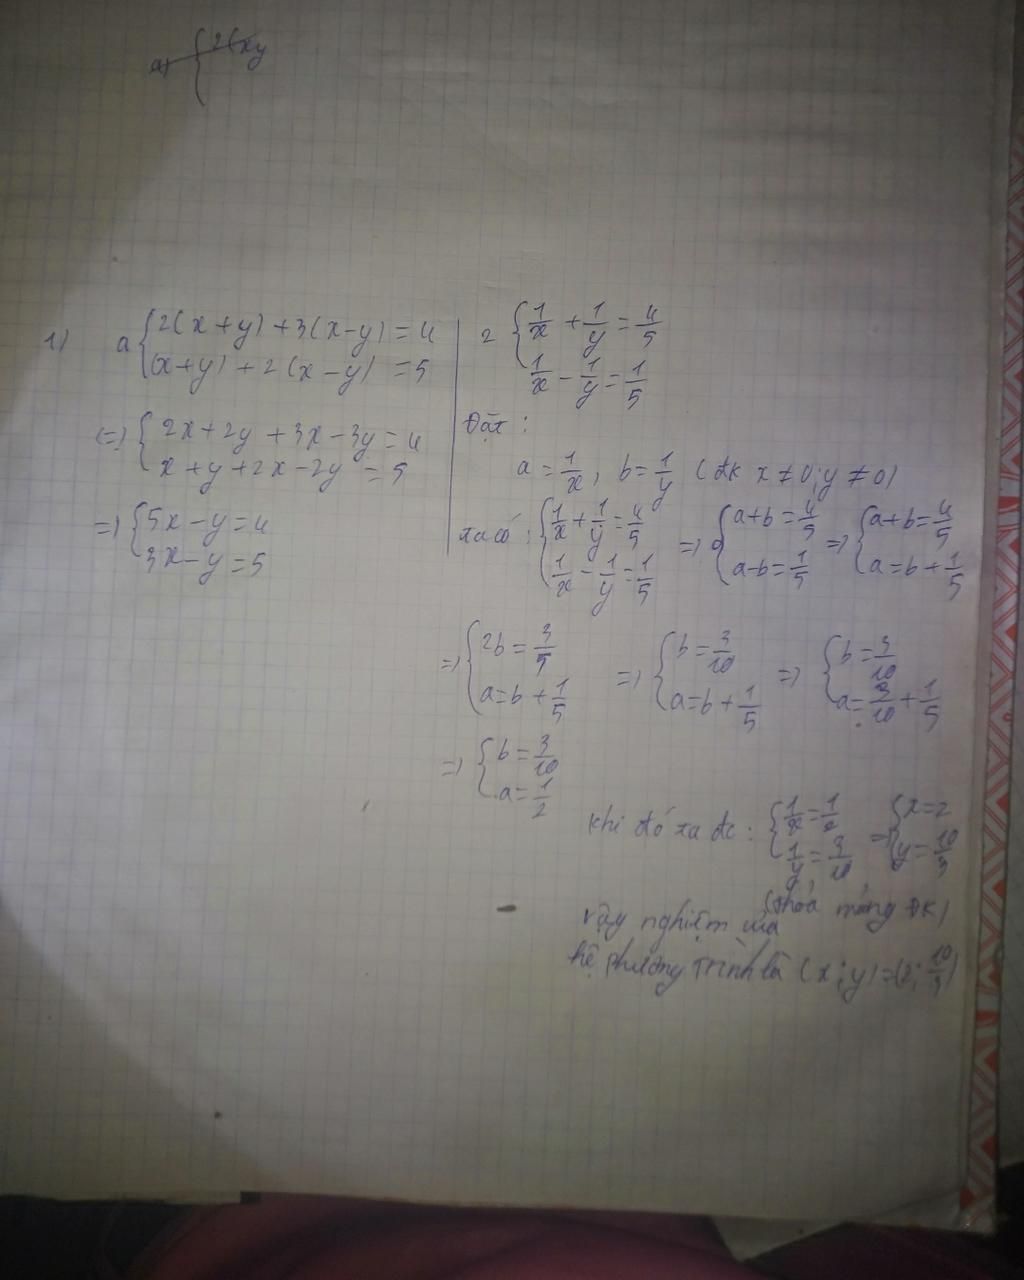 a) { 2(xy
1) a { 2(x+y)+3(x-y)=4
(x+y)+2(x-y)=5
(=) { 2x+2y+3x-3y=4
x+y+2x-2y=5
=) { 5x-y=4
3x-y=5
2 { 1/x + 1/y = 4/5
1/x - 1/y = 1/5
Đặt:
a = 1/x, b = 1/y (đk x ≠ 0; y ≠ 0)
ta có: { 1/x + 1/y = 4/5 =) { a+b = 4/5 =) { a+b = 4/5
1/x - 1/y = 1/5 a-b = 1/5 a = b + 1/5
=) { 2b = 3/5 =) { b = 3/10 =) { b = 3/10
a = b + 1/5 a = b + 1/5 a = 3/10 + 1/5
=) { b = 3/10
a = 1/2
khi đó ta đc: { 1/x = 1/2 =) { x = 2
1/y = 3/10 y = 10/3
(thỏa mảng ĐK)
vậy nghiệm của
hệ phương trình là (x;y)=(2; 10/3)